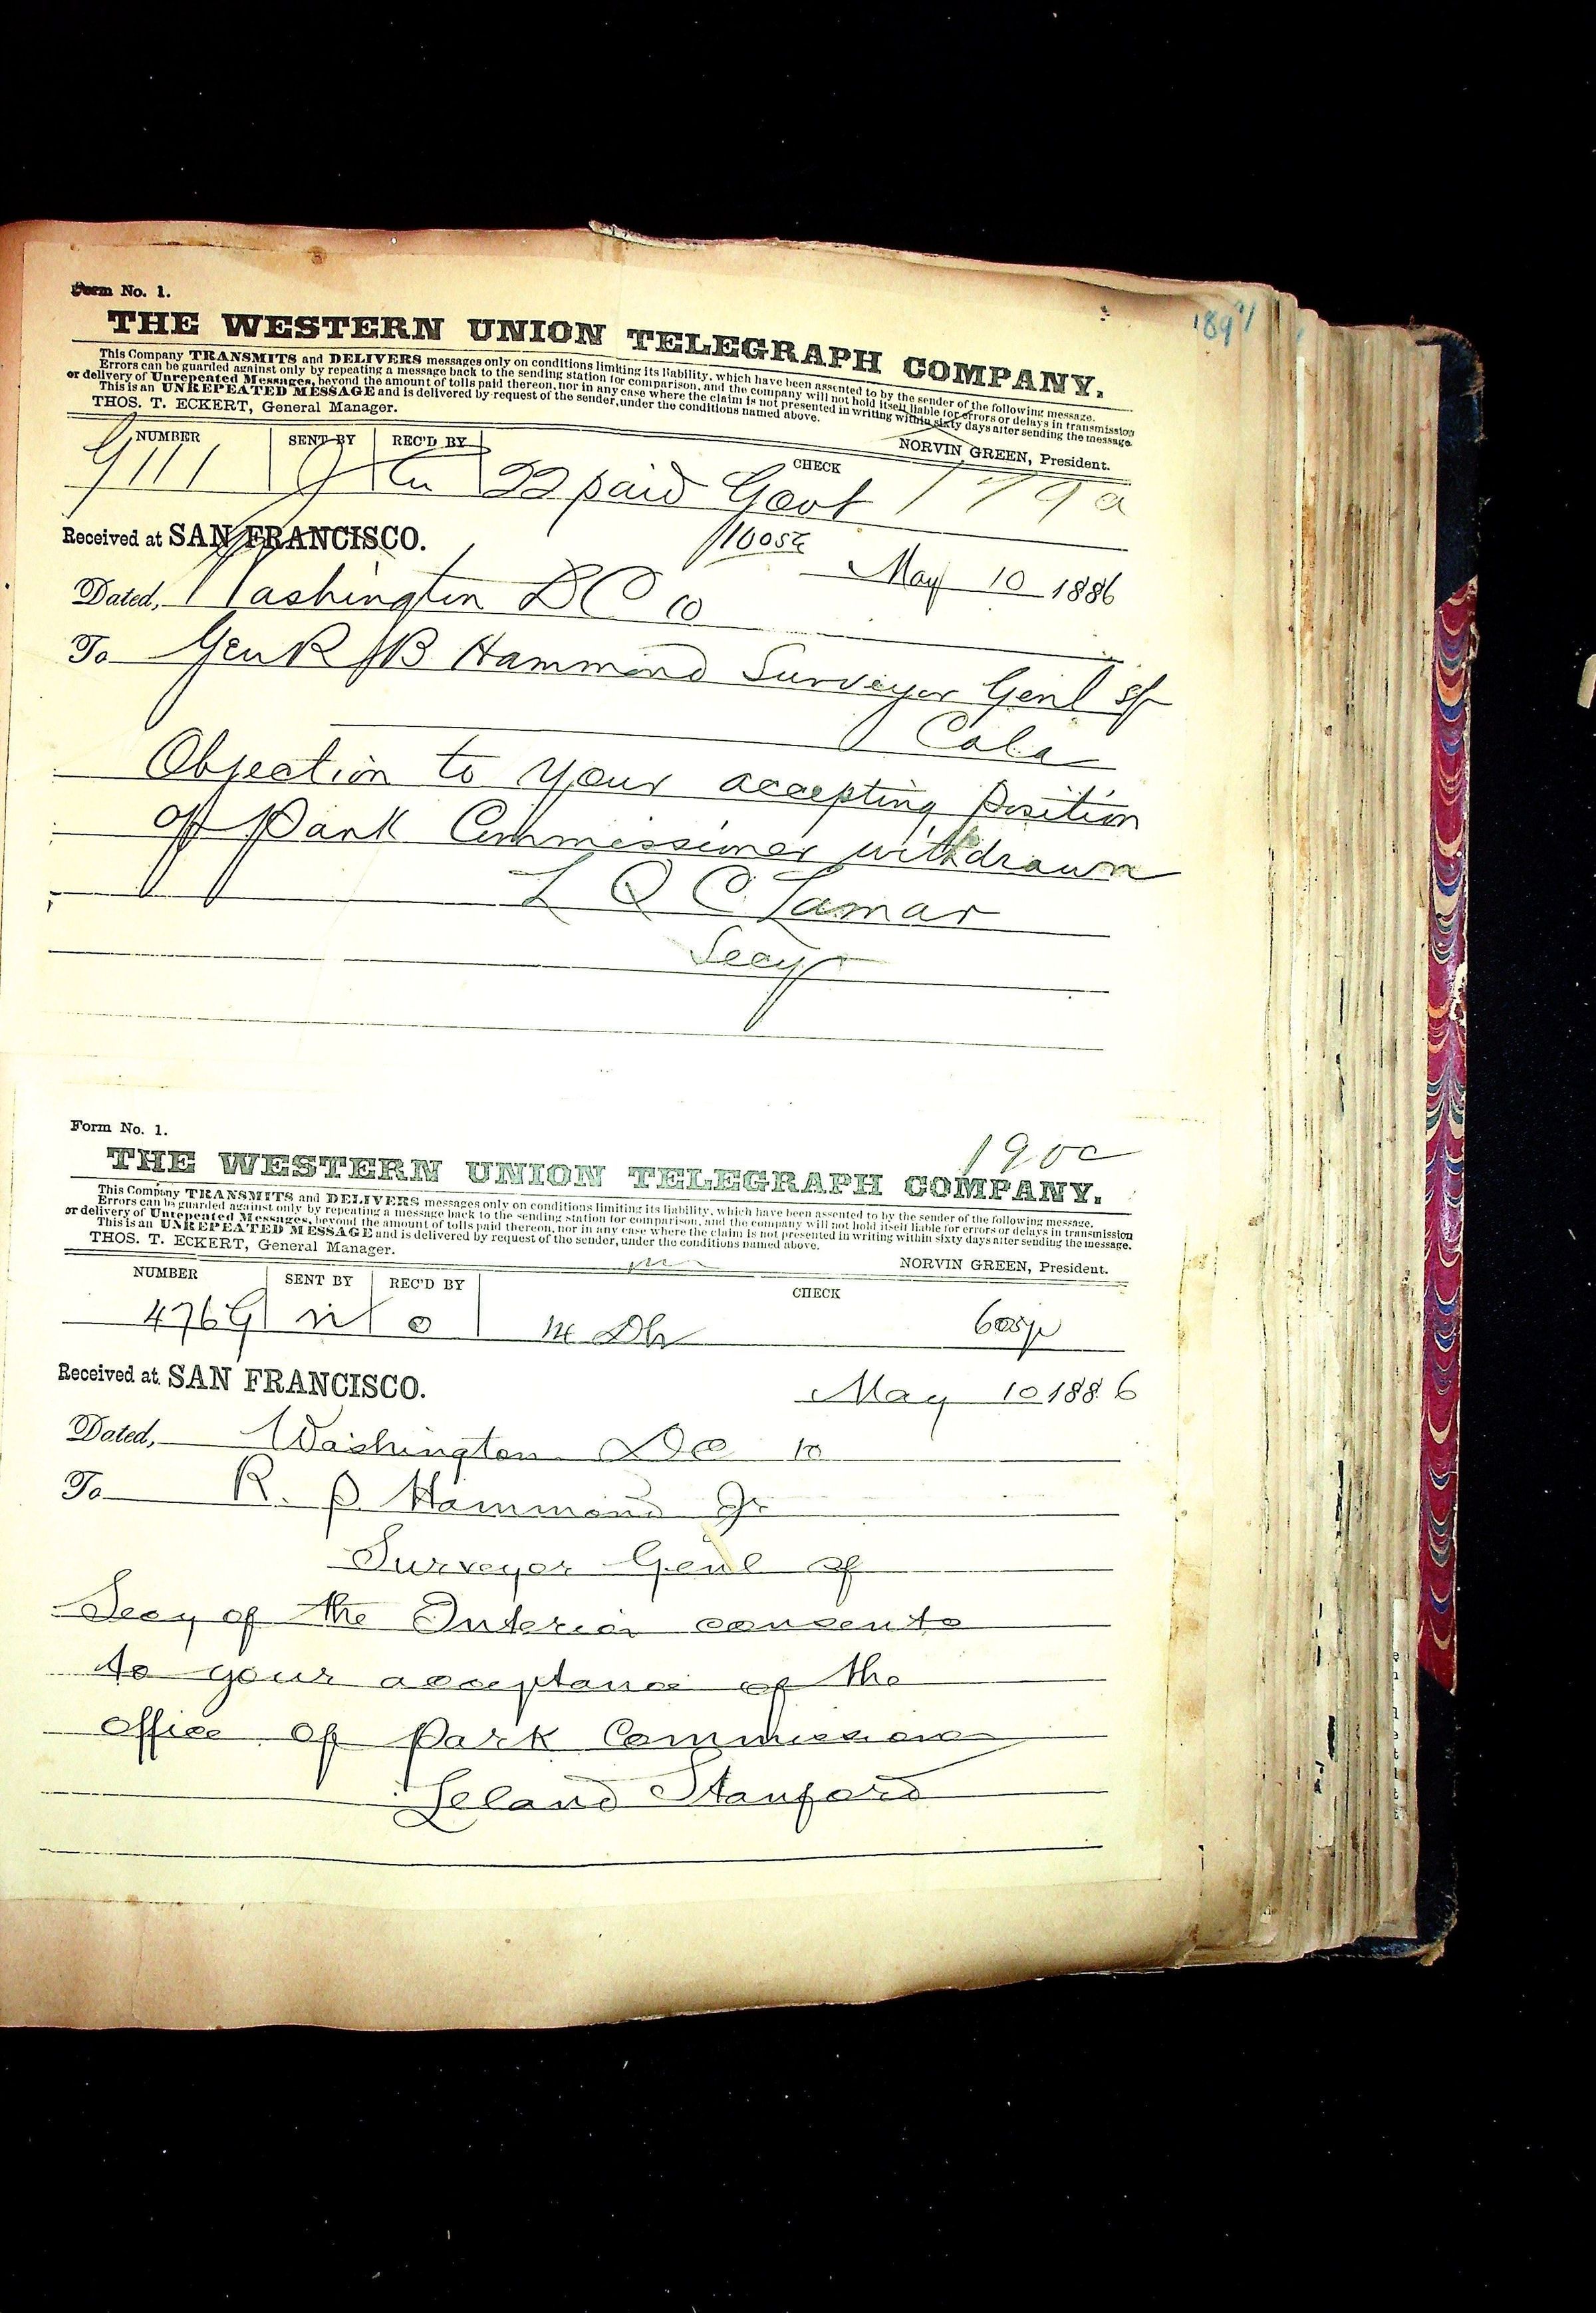 Form No. 1.
THE WESTERN UNION TELEGRAPH COMPANY.
This Company TRANSMITS and DELIVERS messages only on conditions limiting its liability, which have been assented to by the sender of the following message.
Errors can be guarded against only by repeating a message back to the sending station for comparison, and the company will not hold itself liable for errors or delays in transmission
or delivery of Unrepeated Messages, beyond the amount of tolls paid thereon, nor in any case where the claim is not presented in writing within sixty days after sending the message.
This is an UNREPEATED MESSAGE and is delivered by request of the sender, under the conditions named above.
THOS. T. ECKERT, General Manager. NORVIN GREEN, President.
NUMBER SENT BY REC'D BY CHECK
G111 22 paid Govt
Received at SAN FRANCISCO.
May 10 1886
Dated, Washington DC 10
To Gen R B Hammond Surveyor Genl sf
Cala
Objection to your accepting position
of Park Commissioner withdrawn
L Q C Lamar
Secy
Form No. 1. 190c
THE WESTERN UNION TELEGRAPH COMPANY.
This Company TRANSMITS and DELIVERS messages only on conditions limiting its liability, which have been assented to by the sender of the following message.
Errors can be guarded against only by repeating a message back to the sending station for comparison, and the company will not hold itself liable for errors or delays in transmission
or delivery of Unrepeated Messages, beyond the amount of tolls paid thereon, nor in any case where the claim is not presented in writing within sixty days after sending the message.
This is an UNREPEATED MESSAGE and is delivered by request of the sender, under the conditions named above.
THOS. T. ECKERT, General Manager. NORVIN GREEN, President.
NUMBER SENT BY REC'D BY CHECK
476G 14 Dh 605p
Received at SAN FRANCISCO.
May 10 1886
Dated, Washington DC 10
To R. P. Hammond Jr
Surveyor Genl sf
Secy of the Interior consents
to your acceptance of the
office of Park Commissioner
Leland Stanford